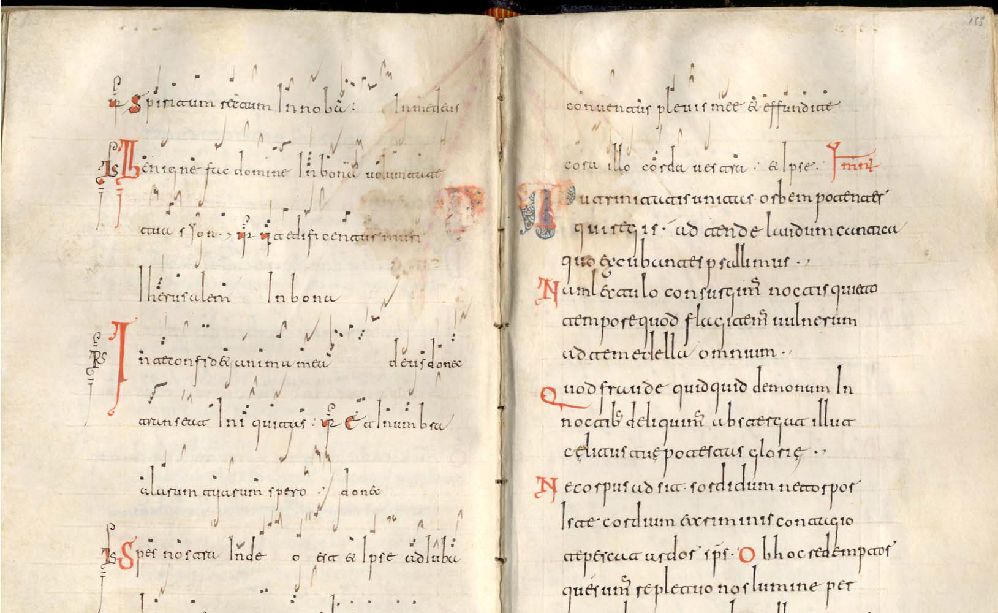 Spiritum Innoba : In me deus
Benigne fac domine In bona uoluntate
tua sion : ut edificentur muri
Iherusalem In bona
In te confidet anima mea deus donec
transeat Iniquitas : Et In umbra
alarum tuarum spero : donec
Spes nostra Inde o est et Ipse adiuba
155
conuentus plevis mee et effundite
cora illo corda uestra : et Ipse : Ymn
Tu trinitatis unitas orbem potenter
qui regis : adtende laudum cantica
que excubantes psallimus ··
Nam lectulo consurgim̅ noctis quieto
tempore quod flagitem̅ uulnerum
ad te medella omnium ··
Quod fraude quidquid demonum In
noctib; deliquim̅ abstergat illut
celitus tue potestas glorie ··
Ne corpus adsit sordidum nec torpor
Iste cordium criminis contagio
tepescat ardor sp̅s · Ob hoc redemptor
quesum̅ repletuo nos lumine per